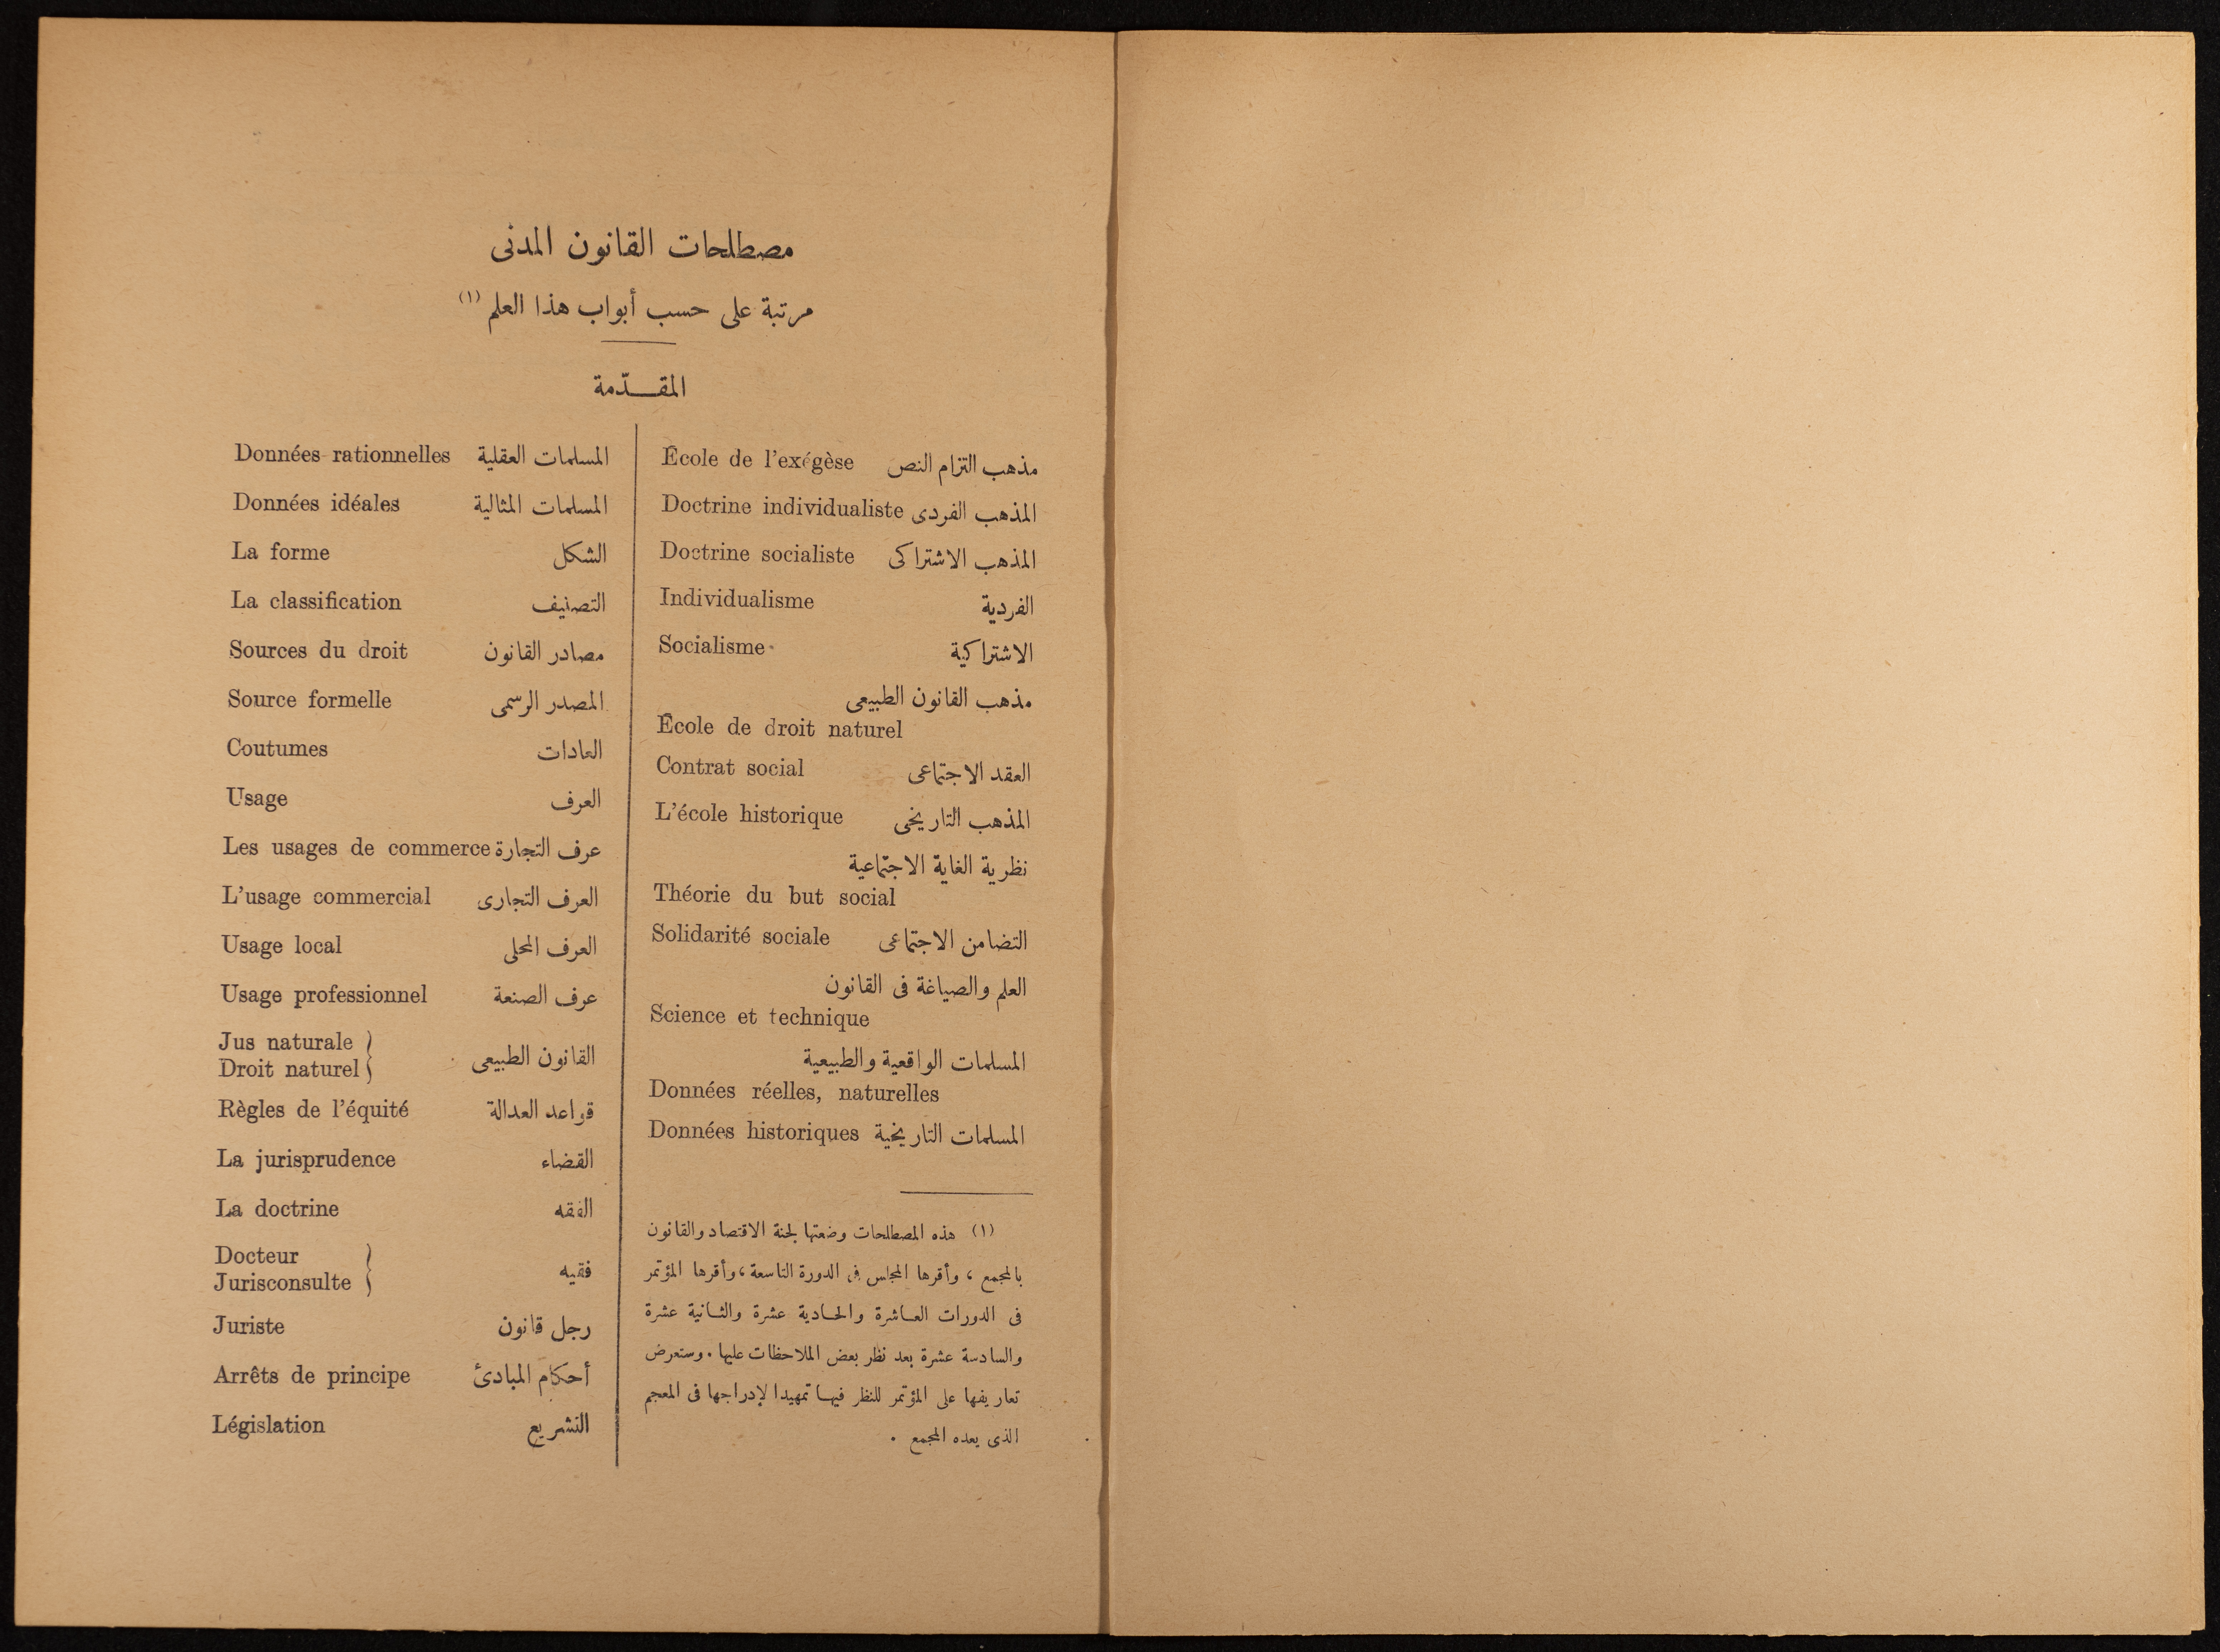 مصطلحات القانون المدنى
مرتبة على حسب أبواب هذا العلم (١)
المقـــدّمة
مذهب التزام النص École de l’exégèse
المذهب الفردى Doctrine individualiste
المذهب الاشتراكى Doctrine socialiste
الفردية Individualisme
الاشتراكية Socialisme
مذهب القانون الطبيعى
École de droit naturel
العقد الاجتماعى Contrat social
المذهب التاريخى L’école historique
نظرية الغاية الاجتماعية
Théorie du but social
التضامن الاجتماعى Solidarité sociale
العلم والصياغة فى القانون
Science et technique
المسلمات الواقعية والطبيعية
Données réelles, naturelles
المسلمات التاريخية Données historiques
(١) هذه المصطلحات وضعتها لجنة الاقتصاد والقانون
بالمجمع ، وأقرها المجلس فى الدورة التاسعة ، وأقرها المؤتمر
فى الدورات العـاشرة والحـادية عشرة والثـانية عشرة
والسادسة عشرة بعد نظر بعض الملاحظات عليها . وستعرض
تعاريفها على المؤتمر للنظر فيهـا تمهيدا لإدراجها فى المعجم
الذى يعده المجمع .
المسلمات العقلية Données rationnelles
المسلمات المثالية Données idéales
الشكل La forme
التصنيف La classification
مصادر القانون Sources du droit
المصدر الرسمى Source formelle
العادات Coutumes
العرف Usage
عرف التجارة Les usages de commerce
العرف التجارى L’usage commercial
العرف المحلى Usage local
عرف الصنعة Usage professionnel
القانون الطبيعى { Jus naturale
Droit naturel
قواعد العدالة Règles de l’équité
القضاء La jurisprudence
الفقه La doctrine
فقيه { Docteur
Jurisconsulte
رجل قانون Juriste
أحكام المبادئ Arrêts de principe
التشريع Législation